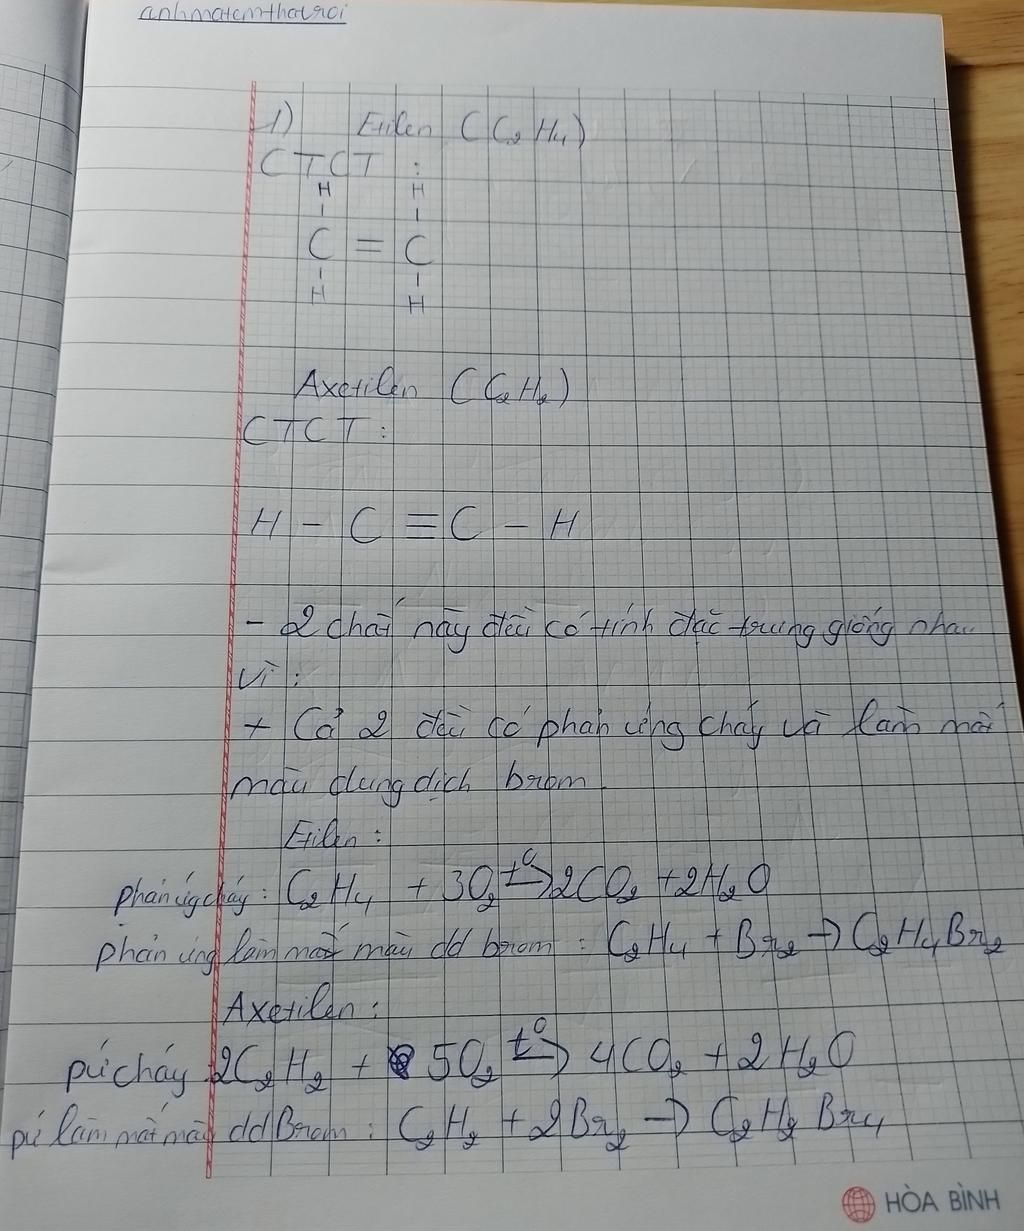 anhmatemthatroi
1) Etilen (C₂H₄)
CTCT :
H H
C = C
H H
Axetilen (C₂H₂)
CTCT :
H - C ≡ C - H
- 2 chất này đều có tính đặc trưng giống nhau
vì :
+ Cả 2 đều có phản ứng cháy và làm mất
màu dung dịch brom
Etilen :
phản ứg cháy : C₂H₄ + 3O₂ t⁰→ 2CO₂ + 2H₂O
phản ứng làm mất màu dd brom : C₂H₄ + Br₂ → C₂H₄Br₂
Axetilen :
pứ cháy 2C₂H₂ + 5O₂ t⁰→ 4CO₂ + 2H₂O
pứ làm mất màu dd Brom : C₂H₂ + 2Br₂ → C₂H₂Br₄
HÒA BÌNH